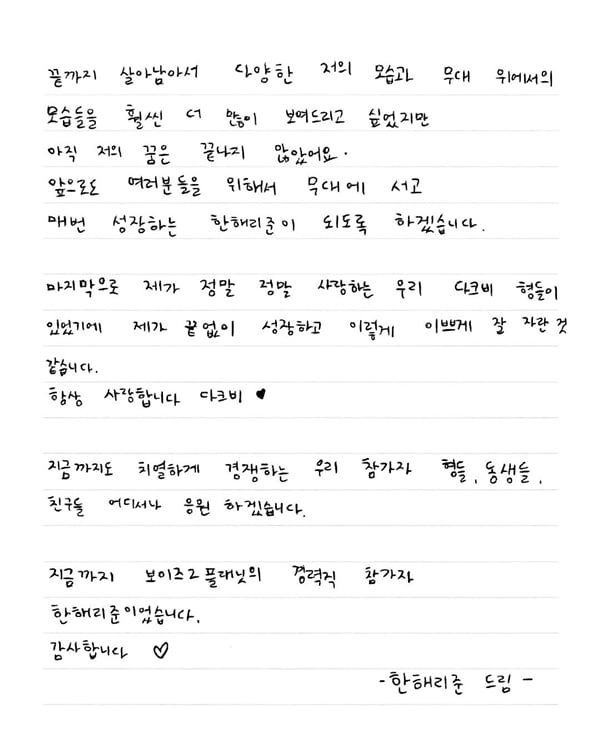 끝까지 살아남아서 다양한 저의 모습과 무대 위에서의
모습들을 훨씬 더 많이 보여드리고 싶었지만
아직 저의 꿈은 끝나지 않았어요.
앞으로도 여러분들을 위해서 무대에 서고
매번 성장하는 한해리준이 되도록 하겠습니다.
마지막으로 제가 정말 정말 사랑하는 우리 다크비 형들이
있었기에 제가 끝없이 성장하고 이렇게 이쁘게 잘 자란 것
같습니다.
항상 사랑합니다 다크비 ♥
지금까지도 치열하게 경쟁하는 우리 참가자 형들, 동생들,
친구들 어디서나 응원 하겠습니다.
지금까지 보이즈2플래닛의 경력직 참가자
한해리준이었습니다.
감사합니다 ♡
-한해리준 드림-